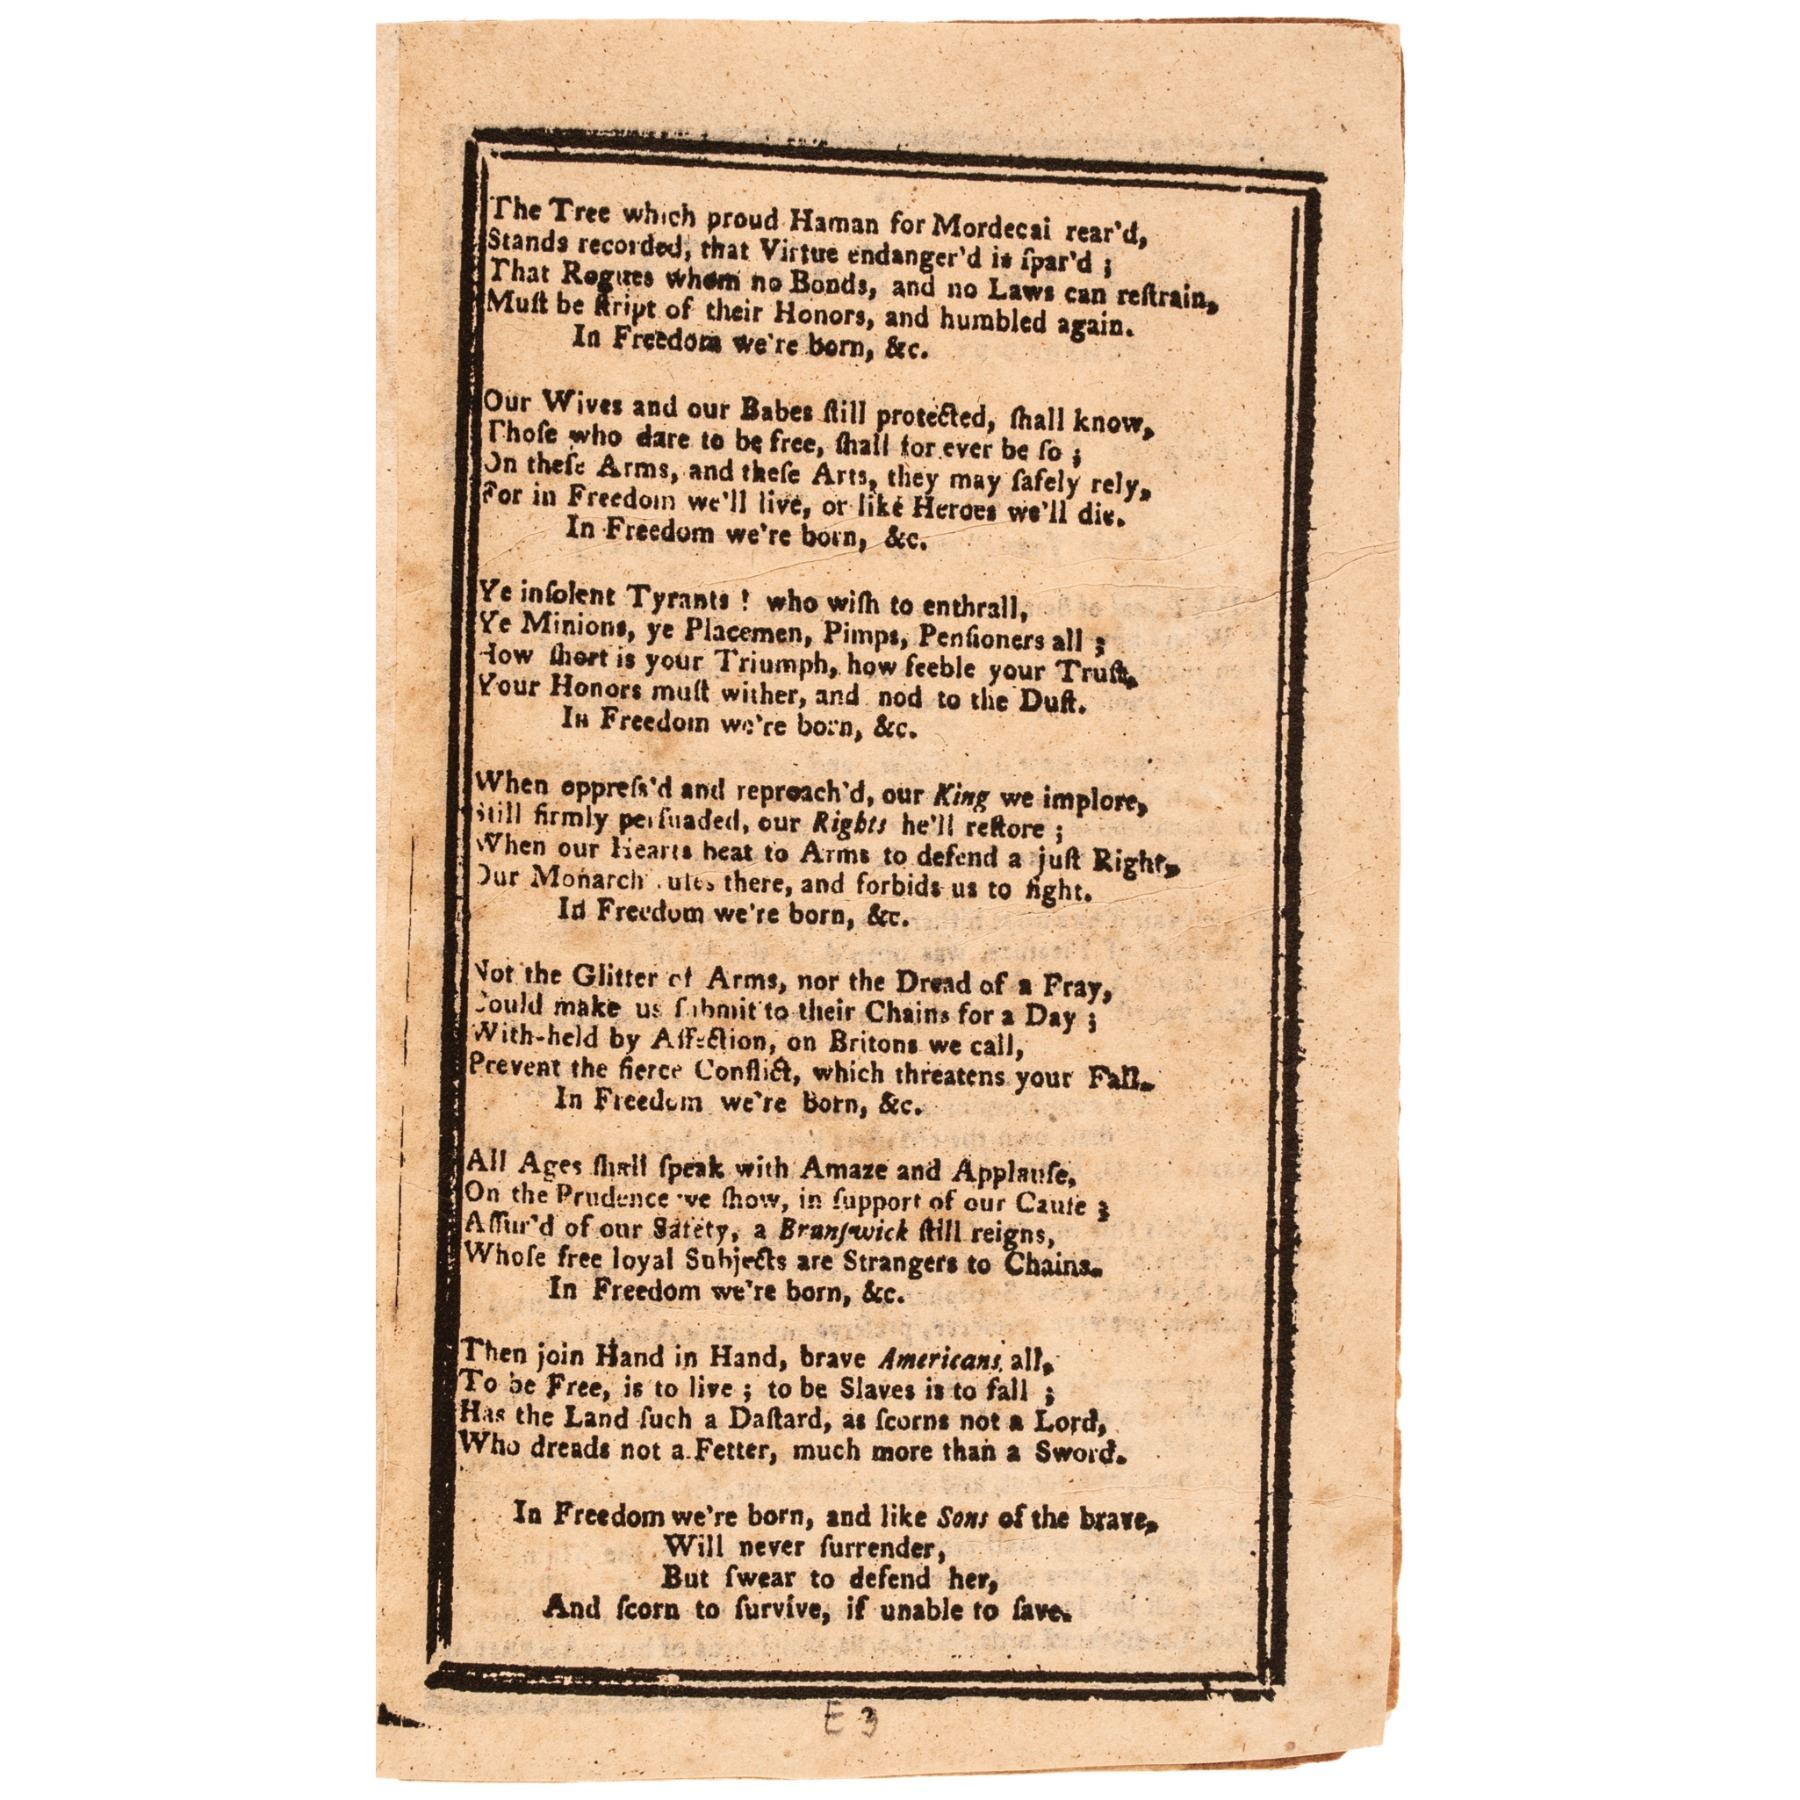 The Tree which proud Haman for Mordecai rear'd,
Stands recorded, that Virtue endanger'd is ſpar'd ;
That Rogues whom no Bonds, and no Laws can reſtrain,
Muſt be ſtript of their Honors, and humbled again.
In Freedom we're born, &c.
Our Wives and our Babes ſtill protected, ſhall know,
Thoſe who dare to be free, ſhall for ever be ſo ;
On theſe Arms, and theſe Arts, they may ſafely rely,
For in Freedom we'll live, or like Heroes we'll die.
In Freedom we're born, &c.
Ye inſolent Tyrants ! who wiſh to enthrall,
Ye Minions, ye Placemen, Pimps, Penſioners all ;
How ſhort is your Triumph, how feeble your Truſt,
Your Honors muſt wither, and nod to the Duſt.
In Freedom we're born, &c.
When oppreſs'd and reproach'd, our King we implore,
Still firmly perſuaded, our Rights he'll reſtore ;
When our Hearts beat to Arms to defend a juſt Right,
Our Monarch rules there, and forbids us to fight.
In Freedom we're born, &c.
Not the Glitter of Arms, nor the Dread of a Fray,
Could make us ſubmit to their Chains for a Day ;
With-held by Affection, on Britons we call,
Prevent the fierce Conflict, which threatens your Fall.
In Freedom we're born, &c.
All Ages ſhall ſpeak with Amaze and Applauſe,
On the Prudence we ſhow, in ſupport of our Cauſe ;
Aſſur'd of our Safety, a Brunſwick ſtill reigns,
Whoſe free loyal Subjects are Strangers to Chains.
In Freedom we're born, &c.
Then join Hand in Hand, brave Americans all,
To be Free, is to live ; to be Slaves is to fall ;
Has the Land ſuch a Daſtard, as ſcorns not a Lord,
Who dreads not a Fetter, much more than a Sword.
In Freedom we're born, and like Sons of the brave,
Will never ſurrender,
But ſwear to defend her,
And ſcorn to ſurvive, if unable to ſave.
E 3